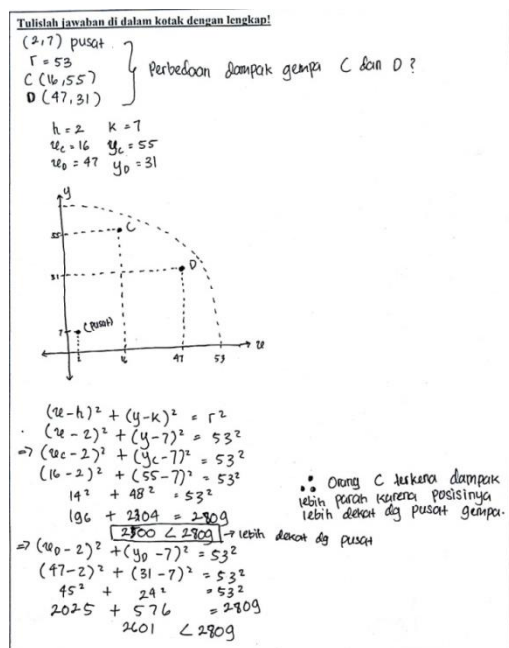 Tulislah jawaban di dalam kotak dengan lengkap!
(2,7) pusat
r = 53
C (16,55)
D (47,31)
Perbedaan dampak gempa C dan D?
h = 2 k = 7
xc = 16 yc = 55
xD = 47 yD = 31
y
55
C
31
D
7
(pusat)
2 16 47 53 x
(x-h)² + (y-k)² = r²
(x-2)² + (y-7)² = 53²
=> (xc-2)² + (yc-7)² = 53²
(16-2)² + (55-7)² = 53²
14² + 48² = 53²
196 + 2304 = 2809
2500 < 2809 → lebih dekat dg pusat
=> (xD-2)² + (yD-7)² = 53²
(47-2)² + (31-7)² = 53²
45² + 24² = 53²
2025 + 576 = 2809
2601 < 2809
∴ Orang C terkena dampak
lebih parah karena posisinya
lebih dekat dg pusat gempa.